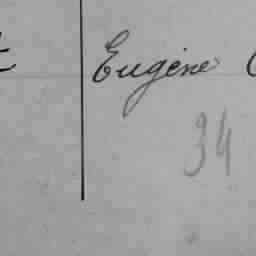 Eugène
34